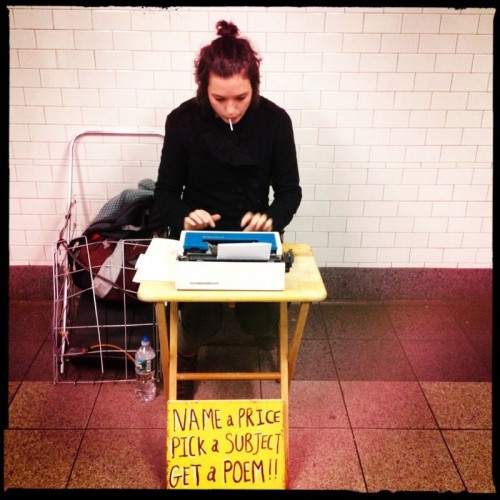 NAME a PRICE
PICK a SUBJECT
GET a POEM!!